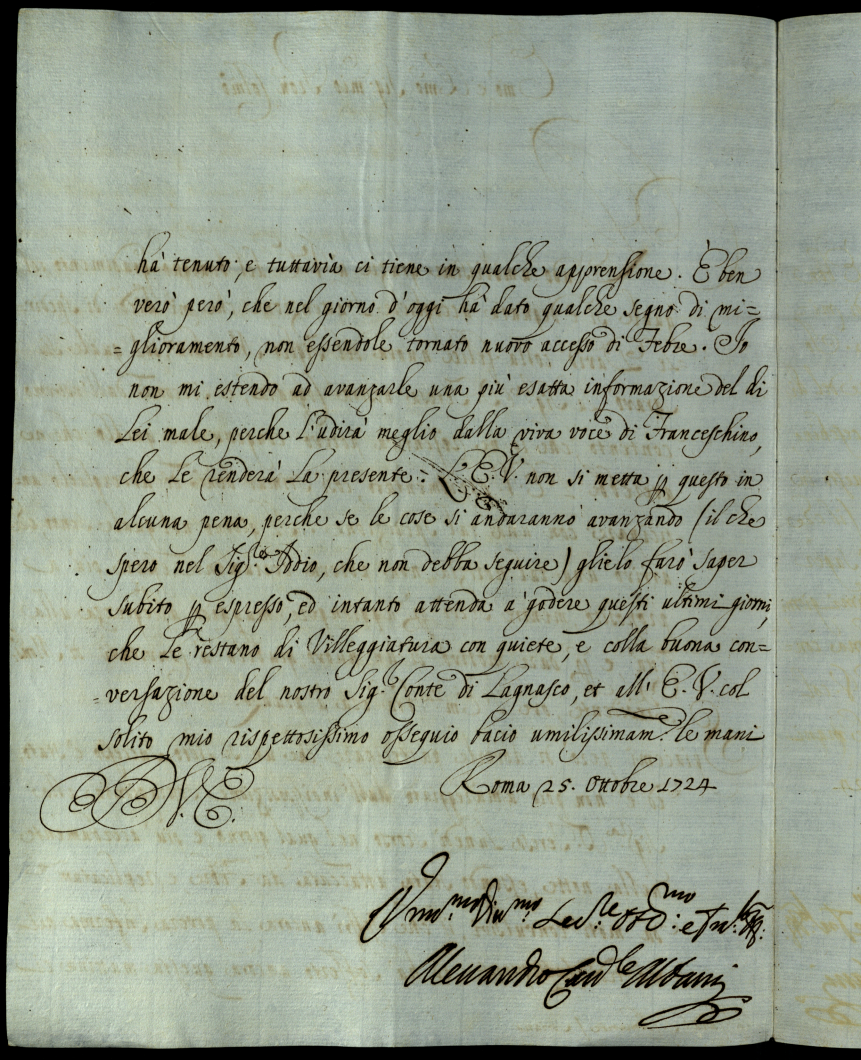 hà tenuto, e tuttavia ci tiene in qualche apprensione. È ben
vero però, che nel giorno d'oggi hà dato qualche segno di mi=
=glioramento, non essendole tornato nuovo accesso di Febre. Io
non mi estendo ad avanzarle una più esatta informazione del di
Lei male, perche l'udirà meglio dalla viva voce di Franceschino,
che Le renderà La presente. L'E.V. non si metta p questo in
alcuna pena, perche se le cose si andaranno avanzando (il che
spero nel Sig.re Iddio, che non debba seguire) glielo farò saper
subito p espresso, ed intanto attenda a godere questi ultimi giorni,
che Le restano di Villeggiatura con quiete, e colla buona con=
=versazione del nostro Sig.r Conte di Lagnasco, et all' E.V. col
solito mio rispettosissimo ossequio bacio umilissimam.e le mani
Roma 25. Ottobre 1724
D.V.E.
Alessandro Card.le Albani